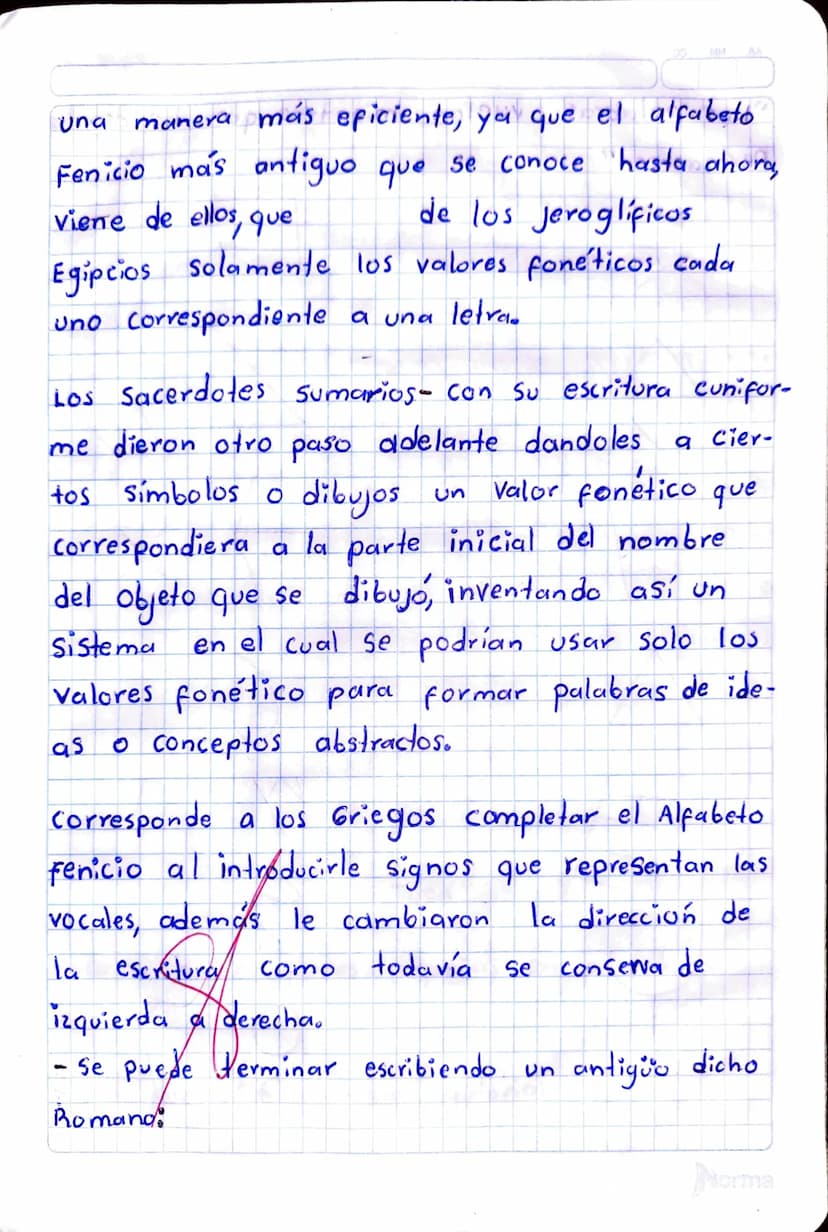 una manera más eficiente, ya que el alfabeto
Fenicio más antiguo que se conoce hasta ahora,
viene de ellos, que de los jeroglíficos
Egipcios solamente los valores fonéticos cada
uno correspondiente a una letra.
Los Sacerdotes sumarios- con su escritura cunifor-
me dieron otro paso adelante dandoles a cier-
tos símbolos o dibujos un valor fonético que
correspondiera a la parte inicial del nombre
del objeto que se dibujó, inventando así un
sistema en el cual se podrían usar solo los
valores fonético para formar palabras de ide-
as o conceptos abstractos.
Corresponde a los Griegos completar el Alfabeto
fenicio al introducirle signos que representan las
vocales, además le cambiaron la dirección de
la escritura como todavía se conserva de
izquierda a derecha.
- Se puede terminar escribiendo un antigüo dicho
Romano:
Norma